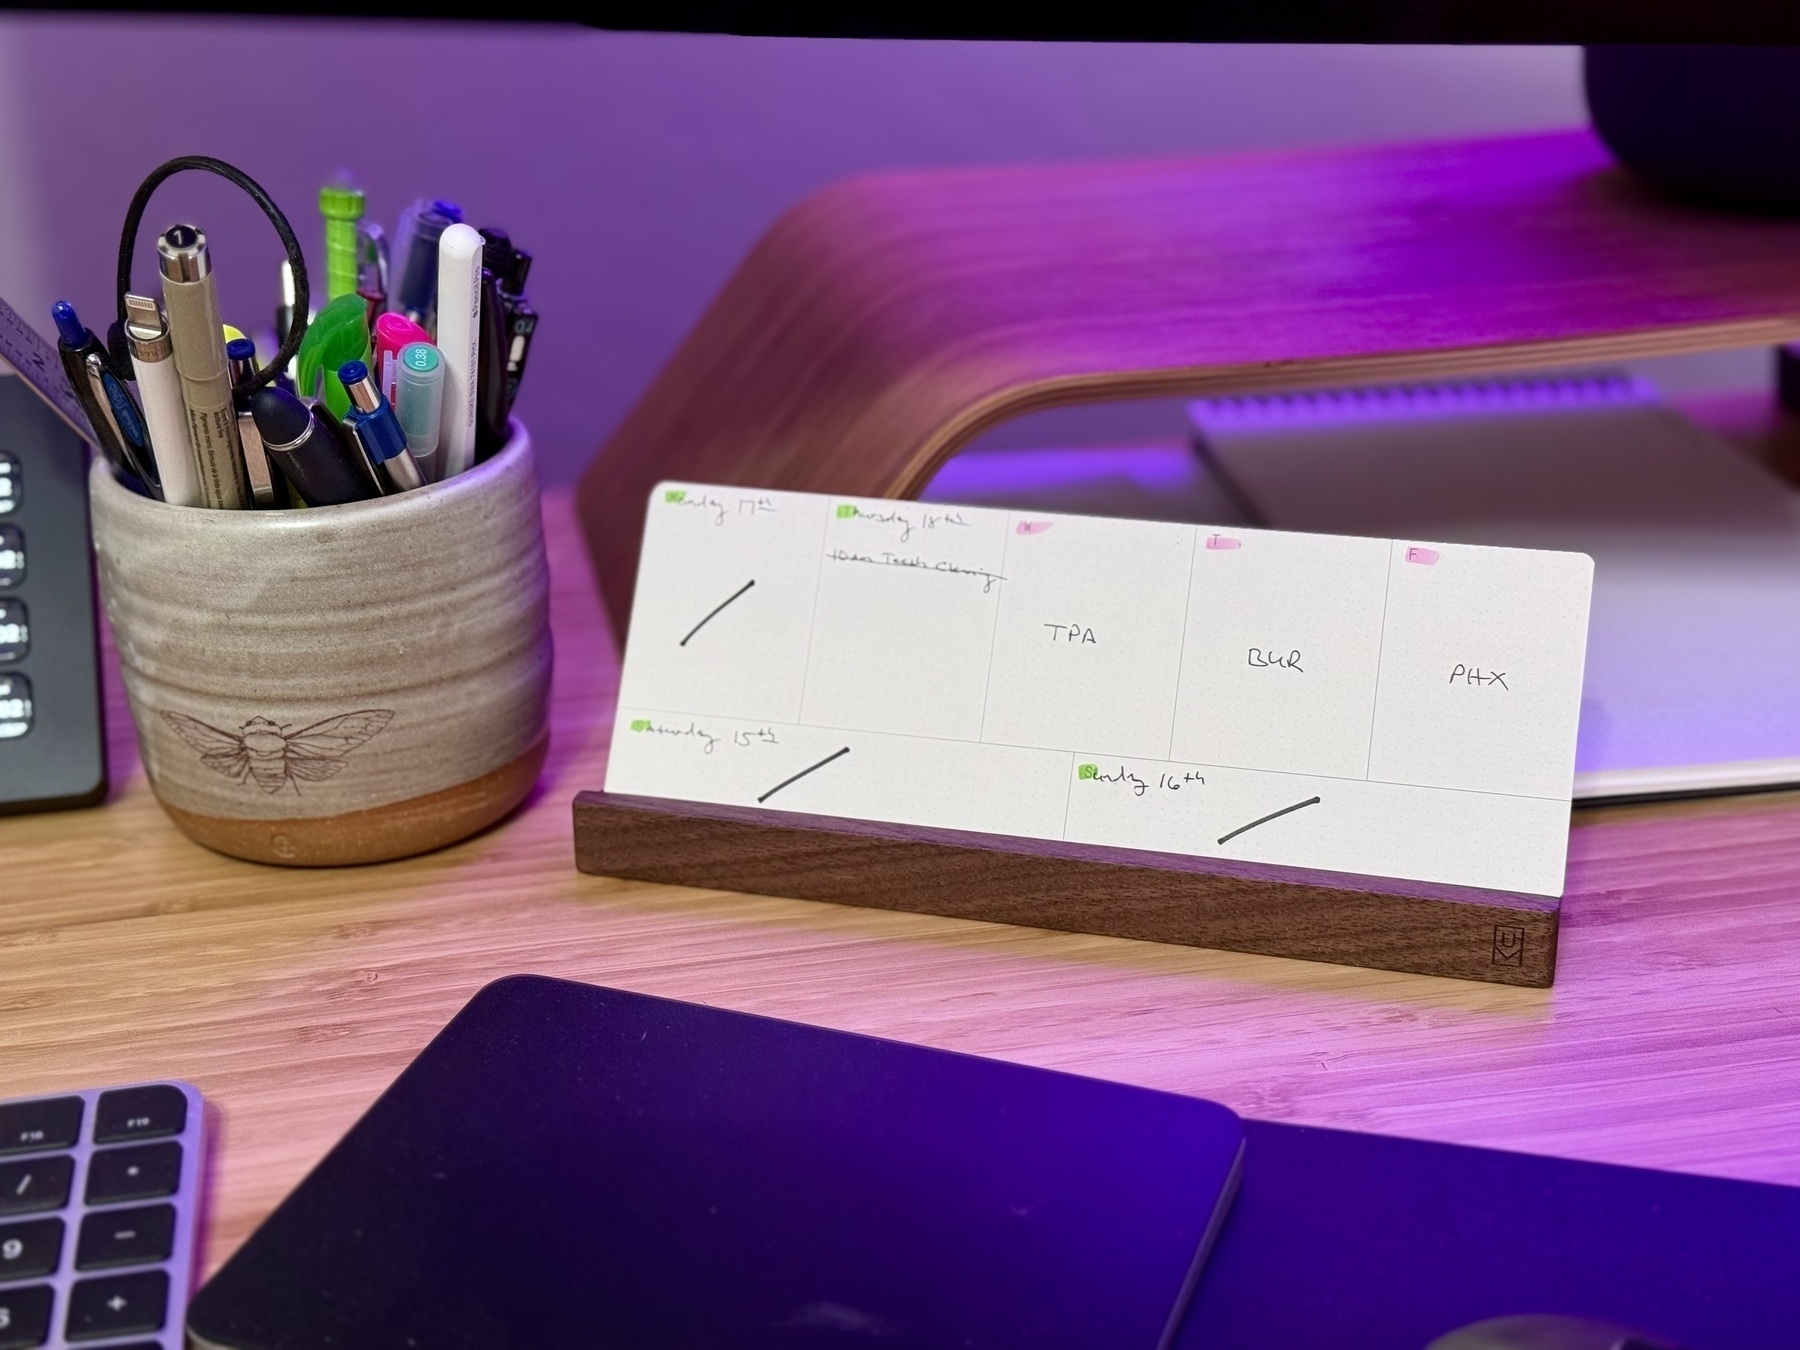 Monday 17th
Thursday 18th
10am Teeth Cleaning
W
TPA
T
BUR
F
PHX
Saturday 15th
Sunday 16th
0.38
F18
F19
/
*
9
-
6
+